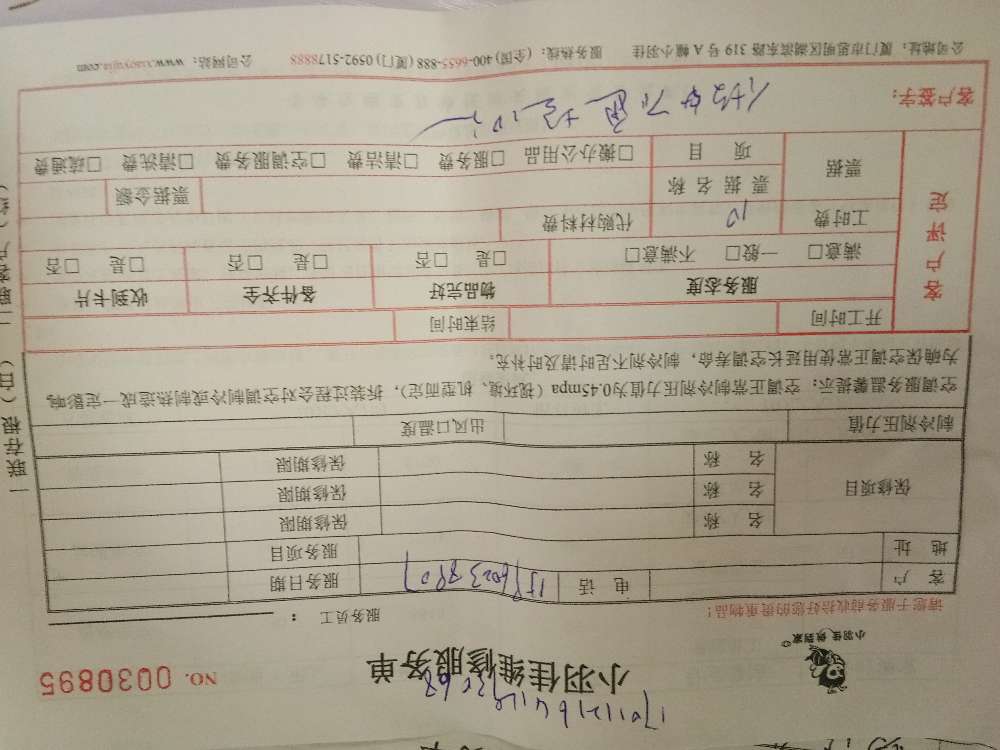 小羽佳维修服务单
NO. 0030895
小羽佳 快到家
请您于服务前收拾好您的贵重物品！
服务员工：
客 户 电 话 服务日期
地 址 服务项目
保修项目 名 称 保修期限
名 称 保修期限
名 称 保修期限
制冷剂压力值 出风口温度
空调服务温馨提示：空调正常制冷剂压力值为0.45mpa（视环境、机型而定），拆装过程会对空调制冷或制热造成一定影响，
为确保空调正常使用延长空调寿命，制冷剂不足时请及时补充。
客户评定
开工时间 结束时间
服务态度 物品完好 备件齐全 收到卡片
满意□ 一般□ 不满意□ □是 □否 □是 □否 □是 □否
工时费 10 代购材料费
票据 票据名称 票据金额
项 目 □搬办公用品 □服务费 □清洁费 □空调服务费 □清洗费 □疏通费
客户签字：
公司地址：厦门市思明区湖滨东路 319 号 A 幢小羽佳 服务热线：(全国) 400-6655-888 (厦门) 0592-5178888 公司网站：www.xiaoyujia.com
一联存根（白）